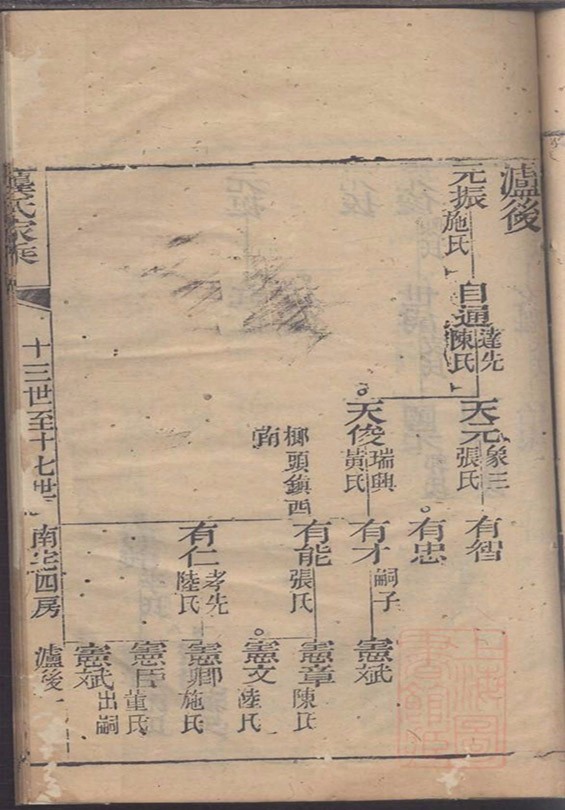 瀘後
元振
施氏
自通
達先
陳氏
天元
象三
張氏
天俊
瑞興
黃氏
榔頭鎮西
南
有智
有忠
有才
嗣子
有能
張氏
有仁
孝先
陸氏
憲斌
憲章
陳氏
憲文
陸氏
憲卿
施氏
憲臣
董氏
憲斌
出嗣
龔氏家乘
十三世至十七世
南宅四房
瀘後